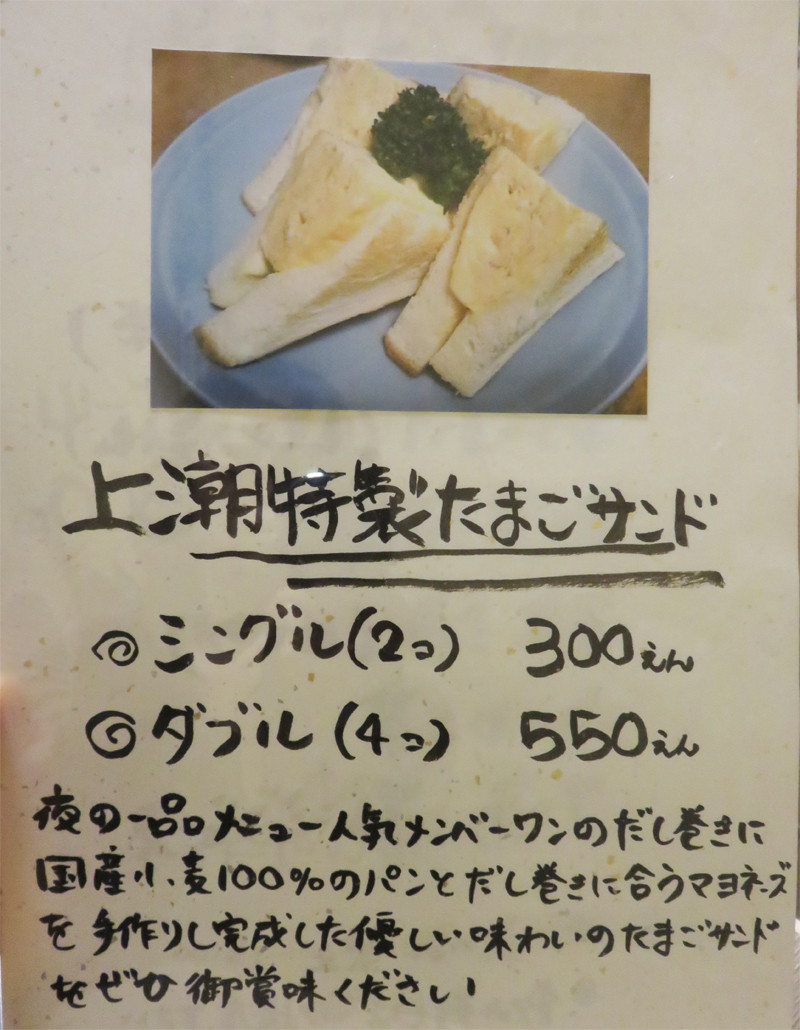 上潮特製たまごサンド
シングル(2コ) 300えん
ダブル(4コ) 550えん
夜の一品メニュー人気メンバーワンのだし巻きに
国産小麦100%のパンとだし巻きに合うマヨネーズ
を手作りし完成した優しい味わいのたまごサンド
をぜひ御賞味ください